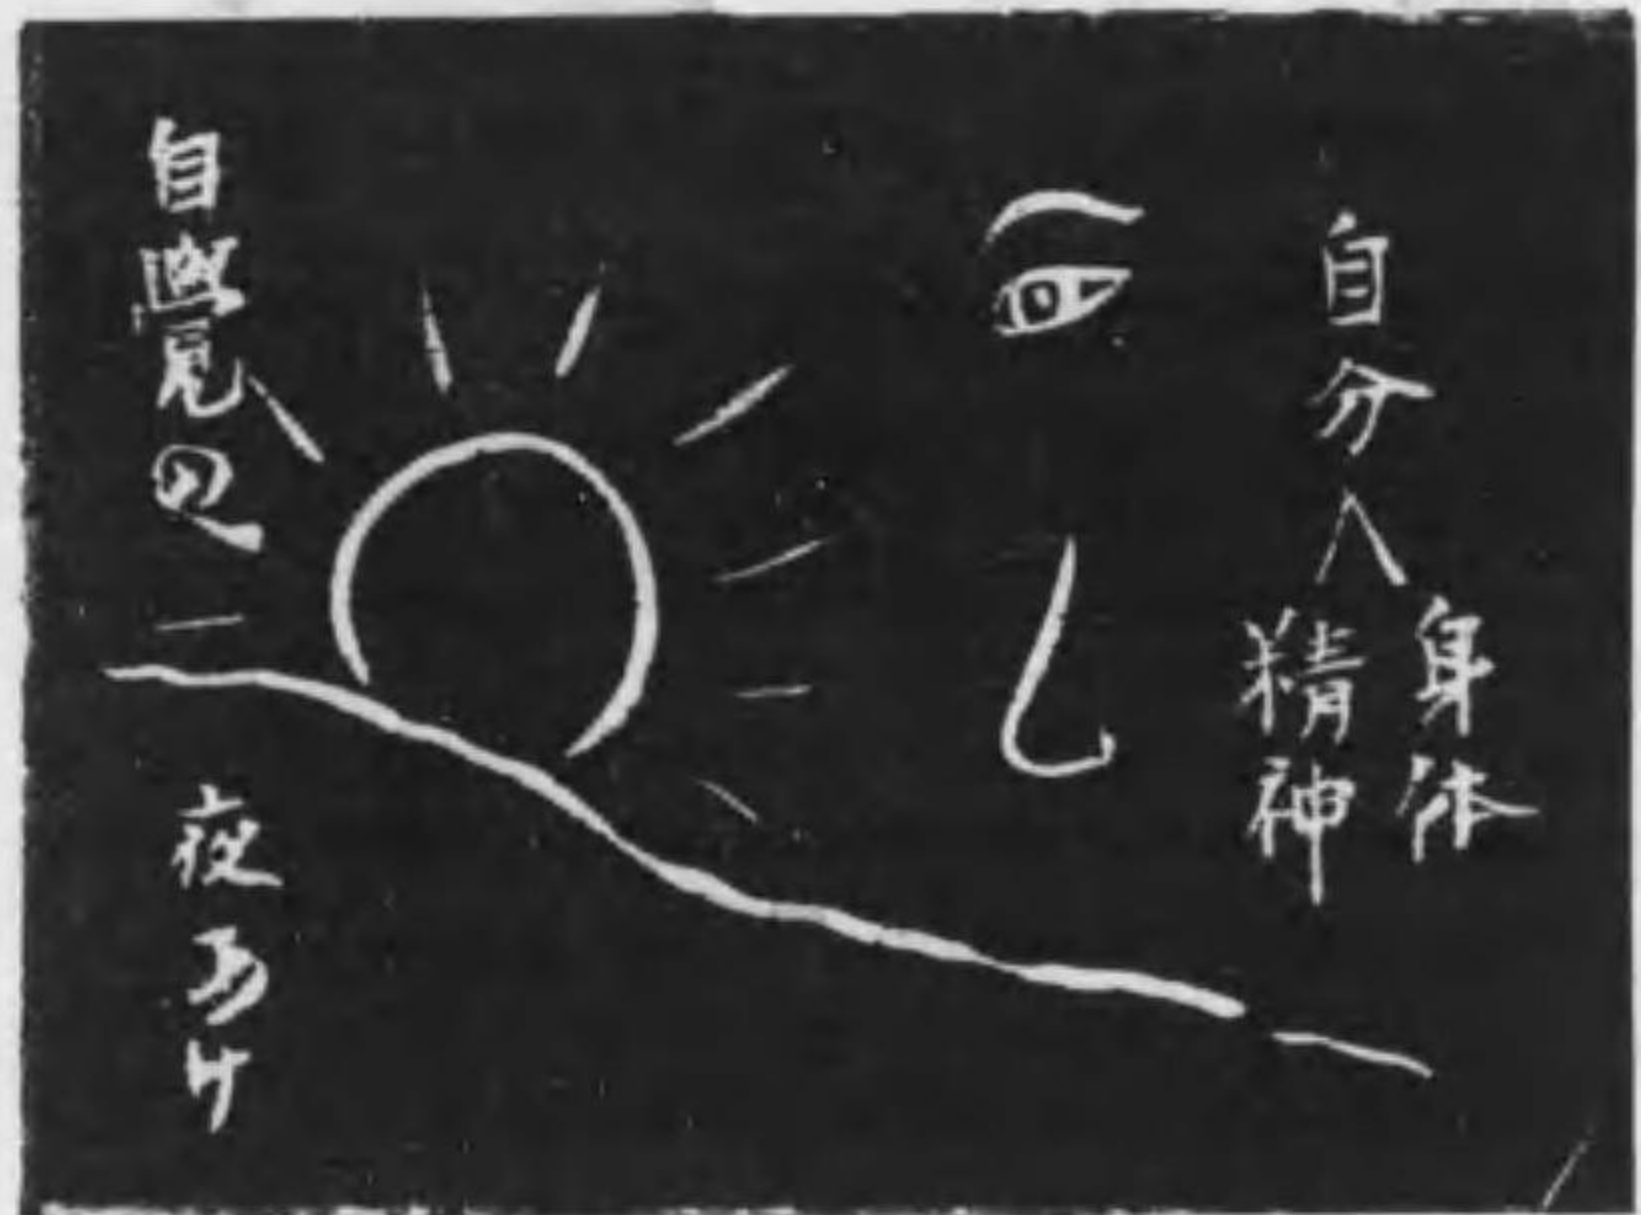 自分
身体
精神
自覺の
夜あけ